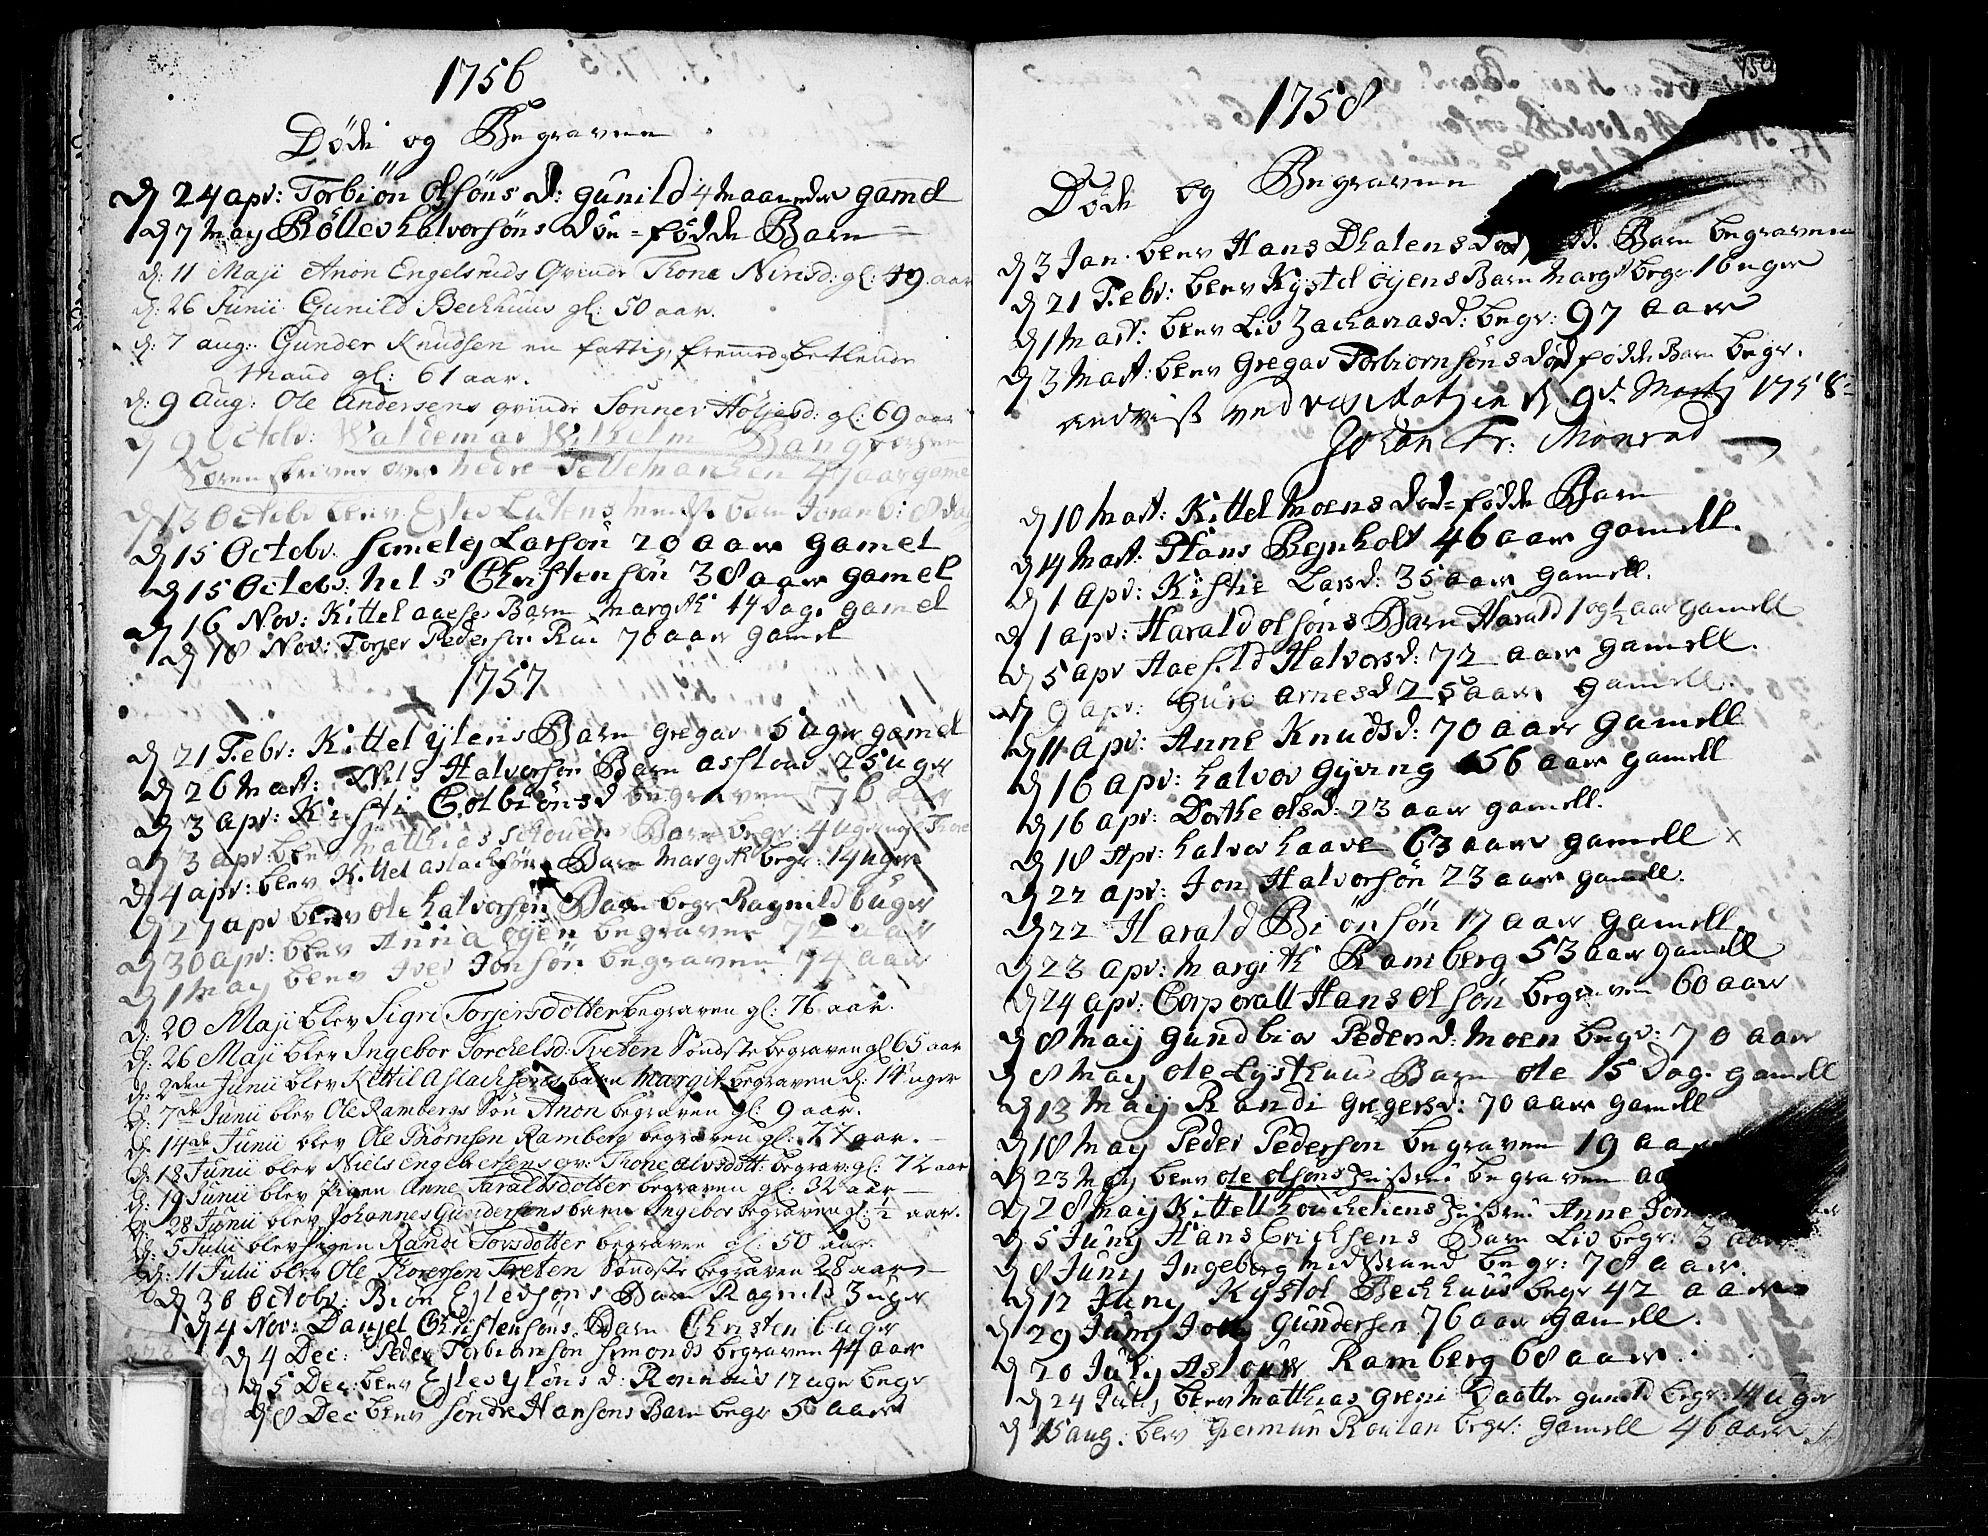 1756
Døde og Begraven
d 24 apr: Torbiön olsöns d: gunild 4 Maaneder gamel
d 7 May Rollev halvorsöns dön=fødde Barn
d: 11 Maji Anon Engelsruds Qvinde Thone Nirisd: gl: 49 aar
d: 26 Junii Gunild Beckhuus gl: 50 aar.
d: 7 aug: Gunder Knudsen en fattig, fremed betlende
Mand gl: 61 aar.
d: 9 Aug: Ole Andersens qvinde Sønnev Höljesd: gl: 69 aar
d 9 Octobr: Waldemar Wilhelm Bang
Soren skriver over nedre Tellemarken 47 aar gamel
d 13 Octobr blev Joran 8 dag
d 15 Octobr. Semeleg Larsön 20 aar gamel
d 15 Octobr: nels Christensön 38 aar gamel
d 16 Nov: Kittel aases Barn Margith 14 Dage gamel
d 18 Nov: Torjer Pedersön Rue 70 aar gamel
1757
d 21 Febr: Kittel Barn gregar 5 uger gamel
d 26 Mart: Nils Halvorsön Barn aslloue 25 uger
d 3 apr: Kisti Colbiönsd begraven 76 aar
d 3 apr: blev Matthias schouens Barn begr: 4 uger
d 4 apr: blev Kittel aslachsön Barn Margith begr: 14 uger
d 27 apr blev ole halvorsön Barn begr Ragnild 6 uger
d 30 apr: blev Anna öyen begraven 72 aar
d 1 May blev Iver Jonsön begraven 74 aar
d: 20 Maji blev Sigri Torjersdotter begraven gl: 76 aar.
d: 26 Maji blev Ingebor Torchelsd: Tveten Søndste begraven gl 65 aar
d: 2den Junii blev Kettil Aslachsens barn Margit begraven d: 14 uger
d: 7de Junii blev Ole Rambergs Søn Anon begraven gl: 9 aar.
d: 14de Junii blev Ole Thørnsen Ramberg begraven gl: 77 aar.
d: 18 Junii blev Niels Engebretsens qv: Thone alvsdott: begrav: gl: 72 aar
d: 19 Junii blev pigen Anne Taraldsdotter begraven gl: 32 aar
d: 28 Junii blev Johannes Gundersens barn Ingebor begraven gl: ½ aar.
d: 5 Julii blev pigen Randi Torsdotter begraven gl: 50 aar.
d: 11 Julii blev Ole Thoresen Tveten Søndste begraven 28 aar
d 30 Octobr: Biön Eslevsöns Barn Ragnild 3 uger
d 4 Nov: Danjel Christensöns Barn Christen 6 uger
d 4 Dec: Peder Torbiörnsön Simonds begraven 44 aar
d 5 Dec blev d: Ronnau 12 uger begr
d 8 Dec blev Søndre Hansöns Barn begr 5 aar
1758
Døde og Begraven
d 3 Jan. blev Hans Dhalens død Barn begraven
d 21 Febr: blev Kystel öyens Barn Margit begr: 16 uger
d 1 Mart: blev Liv Zachariasd: begr: 97 aar
d 3 Mart: blev Gregar Torbiörnsöns død fødde Barn begr.
ved d 9de Martj 1758
Johan Fr: Monrad
d 10 Mart: Kittel Moens død=fødde Barn
d 14 Mart: Hans Rynholt 46 aar gamell.
d 1 apr: Kistie Larsd: 35 aar gamell.
d 1 apr: Harald olsöns Barn Harald 1 og ½ aar gamell
d 5 apr Aaefild Halvorsd: 72 aar gamell.
d 9 apr: Guro arnesd 25 aar gamell.
d 11 apr: Anne Knudsd: 70 aar gamell
d 16 apr: halvor Gyving 56 aar gamell
d 16 apr: Dorthe olsd: 23 aar gamell.
d 18 Apr: halvor haave 63 aar gamell ×
d 22 apr: Jon Halvorsön 23 aar gamell.
d 22 Harald Biönsön 17 aar gamell.
d 23 apr: Margith Ramberg 53 aar gamell
d 24 apr: Corporall Hans olsön begraven 60 aar
d 8 Maij Gundbior Pedersd: Moen begr: 70 aar
d 8 Maij ole Lysthuus Barn ole 15 Dag. gamell
d 13 Maij Randi gregersd: 70 aar gamell
d 18 May Peder Pederson begraven 19 aar
d 23 Maj blev ole olsöns begraven
d 28 Maij Kittell Anne Jon
d 5 Junj Hans Erichsens Barn Liv begr: 3 aar
d 8 Junj Ingeborg Midstrand begr: 78 aar
d 12 Junj Kystol Beckhuus begr 42 aar
d 29 Junj Gundersen 76 aar gamell.
d 20 Julj Aslouw Ramberg 68 aar
d 24 Julj blev Matthias Greni Daatter gunild begr: 14 uger
d 15 aug: blev Giermun Roulan begr: gamell 46 aar